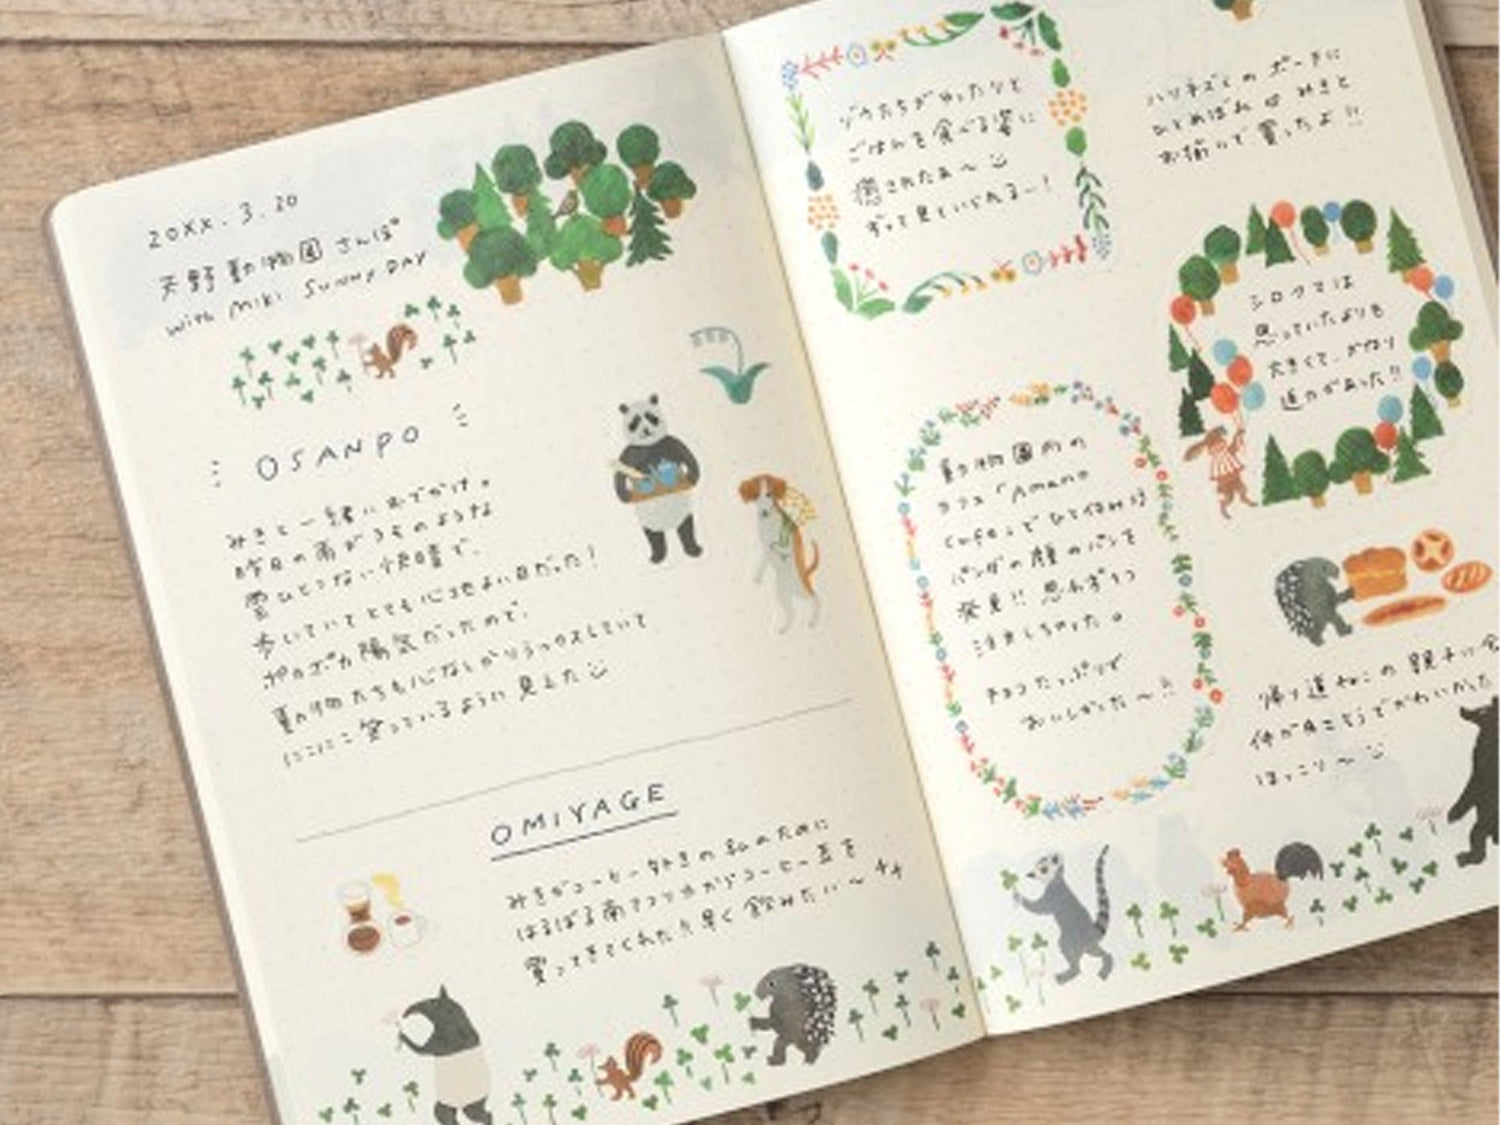 20XX.3.20
天野動物園さんぽ
with Miki SUNNY DAY
OSANPO
みきと一緒におでかけ。
昨日の雨がうそのような
雲ひとつない快晴で、
歩いていてとても心地よい日だった!
ポカポカ陽気だったので、
動物たちも心なしかリラックスしていて
にこにこ笑っているように見えた
OMIYAGE
みきがコーヒー好きの私のために
はるばる南アフリカからコーヒー豆を
買ってきてくれた!! 早く飲みたい〜
ゾウたちがゆったりと
ごはんを食べる姿に
癒されたぁ〜
ずっと見ていられるー!
動物園内の
カフェ「Amano
cafe」でひと休み
パンダの顔のパンを
発見!! 思わず
注文しちゃった。
チョコたっぷりで
おいしかった〜!!
ハリネズミのポーチに
ひとめぼれ みきと
お揃いで買ったよ!!
シロクマは
思っていたよりも
大きくて、かなり
迫力があった!!
帰り道ねこの親子に会
仲が良さそうでかわいかった
ほっこり〜